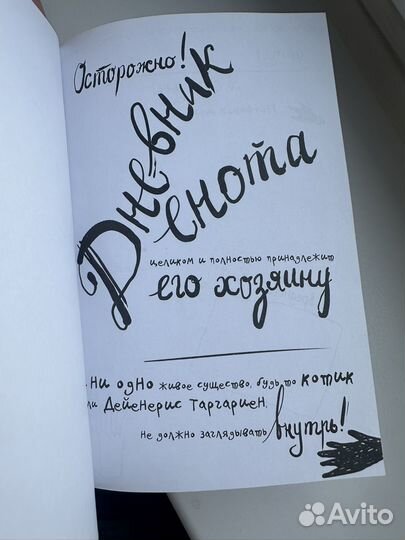 Осторожно!
Дневник
енота
целиком и полностью принадлежит
его хозяину
ни одно живое существо, будь то котик
ли Дейенерис Таргариен,
не должно заглядывать внутрь!
Avito